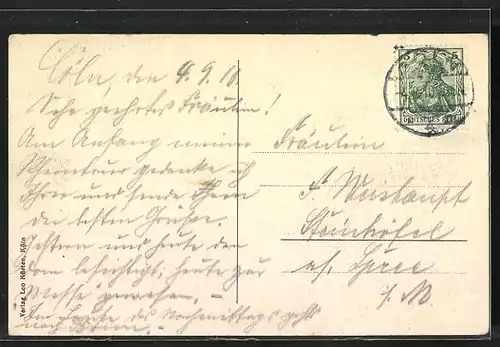 Cöln, den 4.9.10
Sehr geehrtes Fräulein!
Am Anfang meiner
Rheintour gedenke ich
Ihrer und sende Ihnen
die besten Grüsse.
Gestern und heute den
Dom besichtigt, heute zur
Messe gewesen. –
Im Laufe des Nachmittags geht's
nach Bonn. –
Fräulein
Steinhöfel
a/ Spree
i/M
5
DEUTSCHES REICH
Verlag Leo Kürten, Köln